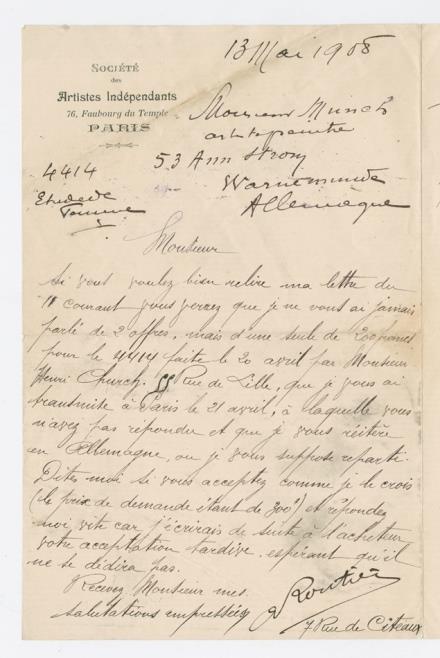 13 Mai 1908
SOCIÉTÉ
des
Artistes Indépendants
76, Faubourg du Temple
PARIS
Monsieur Munch
artiste peintre
53 Am Strom
Warnemunde
Allemagne
4414
Etude de
Femme
Monsieur
Si vous voulez bien relire ma lettre du
11 courant vous verrez que je ne vous ai jamais
parlé de 2 offres, mais d'une seule de 200 francs
pour le 4414 faite le 20 avril par Monsieur
Henri Church. 55 Rue de Lille, que je vous ai
transmite à Paris le 21 avril, à laquelle vous
n'avez pas répondu et que je vous réitère
en Allemagne, ou je vous suppose reparti.
Dites moi si vous acceptez comme je le crois
(le prix de demande étant de 300f) et répondez
moi vite car j'écrirais de suite à l'acheteur
votre acceptation tardive. espérant qu'il
ne se dédira pas.
Recevez Monsieur mes
salutations empressées
Routier
7 Rue de Citeaux